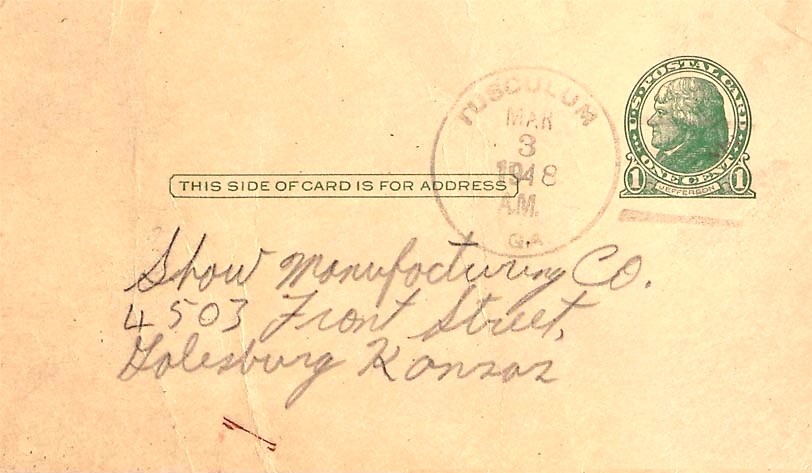 TUSCULUM
MAR
3
1948
A.M.
GA
U.S. POSTAL CARD
ONE CENT
1 JEFFERSON 1
THIS SIDE OF CARD IS FOR ADDRESS
Show Manufacturing Co.
4503 Front Street,
Galesburg Kansas